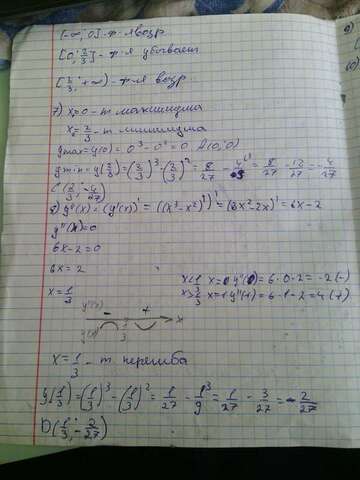 (-∞; 0] - ф-я возр.
[0; 2/3] - ф-я убывает
[2/3; +∞) - ф-я возр.
7) x=0 - т. максимума
x=2/3 - т. минимума
ymax=y(0)=0³-0²=0 A(0;0)
ymin=y(2/3)=(2/3)³-(2/3)²=8/27-4/9=8/27-12/27=-4/27
C(2/3; -4/27)
8) y''(x)=(y'(x))'=((x³-x²)')'=(3x²-2x)'=6x-2
y''(x)=0
6x-2=0
6x=2
x=1/3
x<1/3 x=0 y''(0)=6·0-2=-2(-)
x>1/3 x=1 y''(1)=6·1-2=4(+)
y''(x) - +
y(x) 1/3 x
x=1/3 - т. перегиба
y(1/3)=(1/3)³-(1/3)²=1/27-1/9=1/27-3/27=-2/27
D(1/3; -2/27)
9)
10)